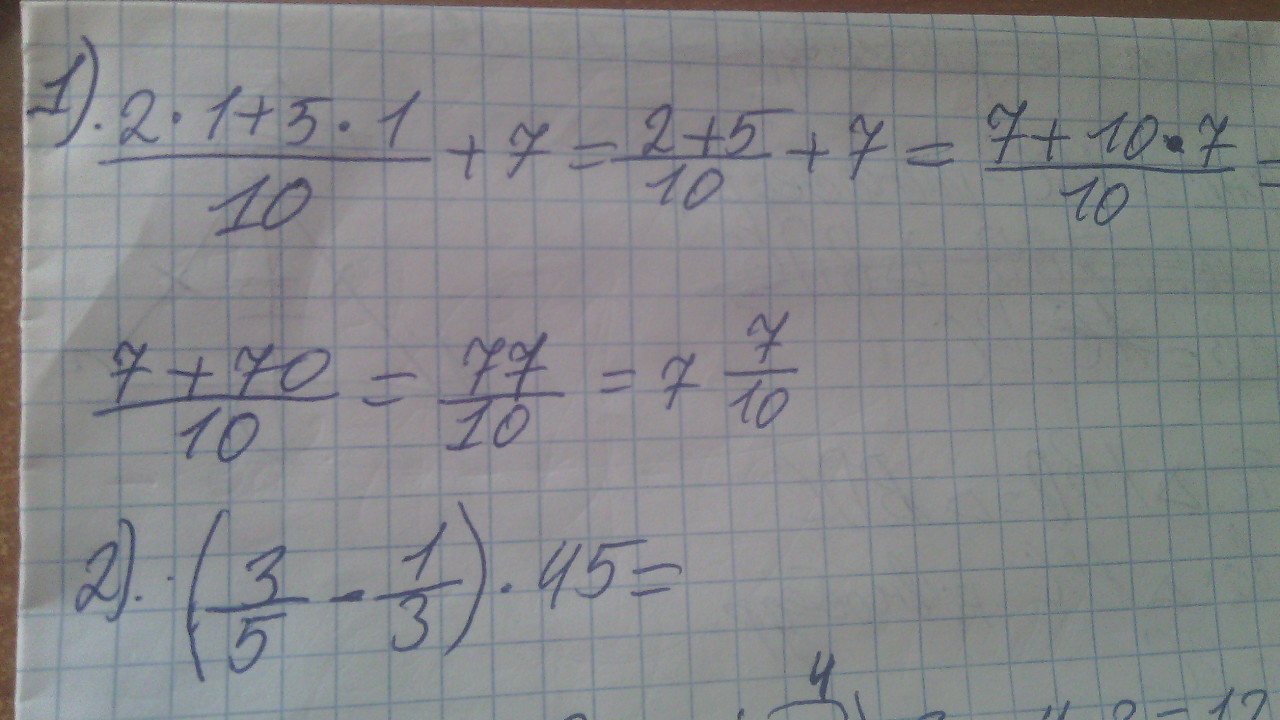 1). (2·1+5·1)/10 + 7 = (2+5)/10 + 7 = (7+10·7)/10 =
(7+70)/10 = 77/10 = 7 7/10
2). (3/5 - 1/3)·45=